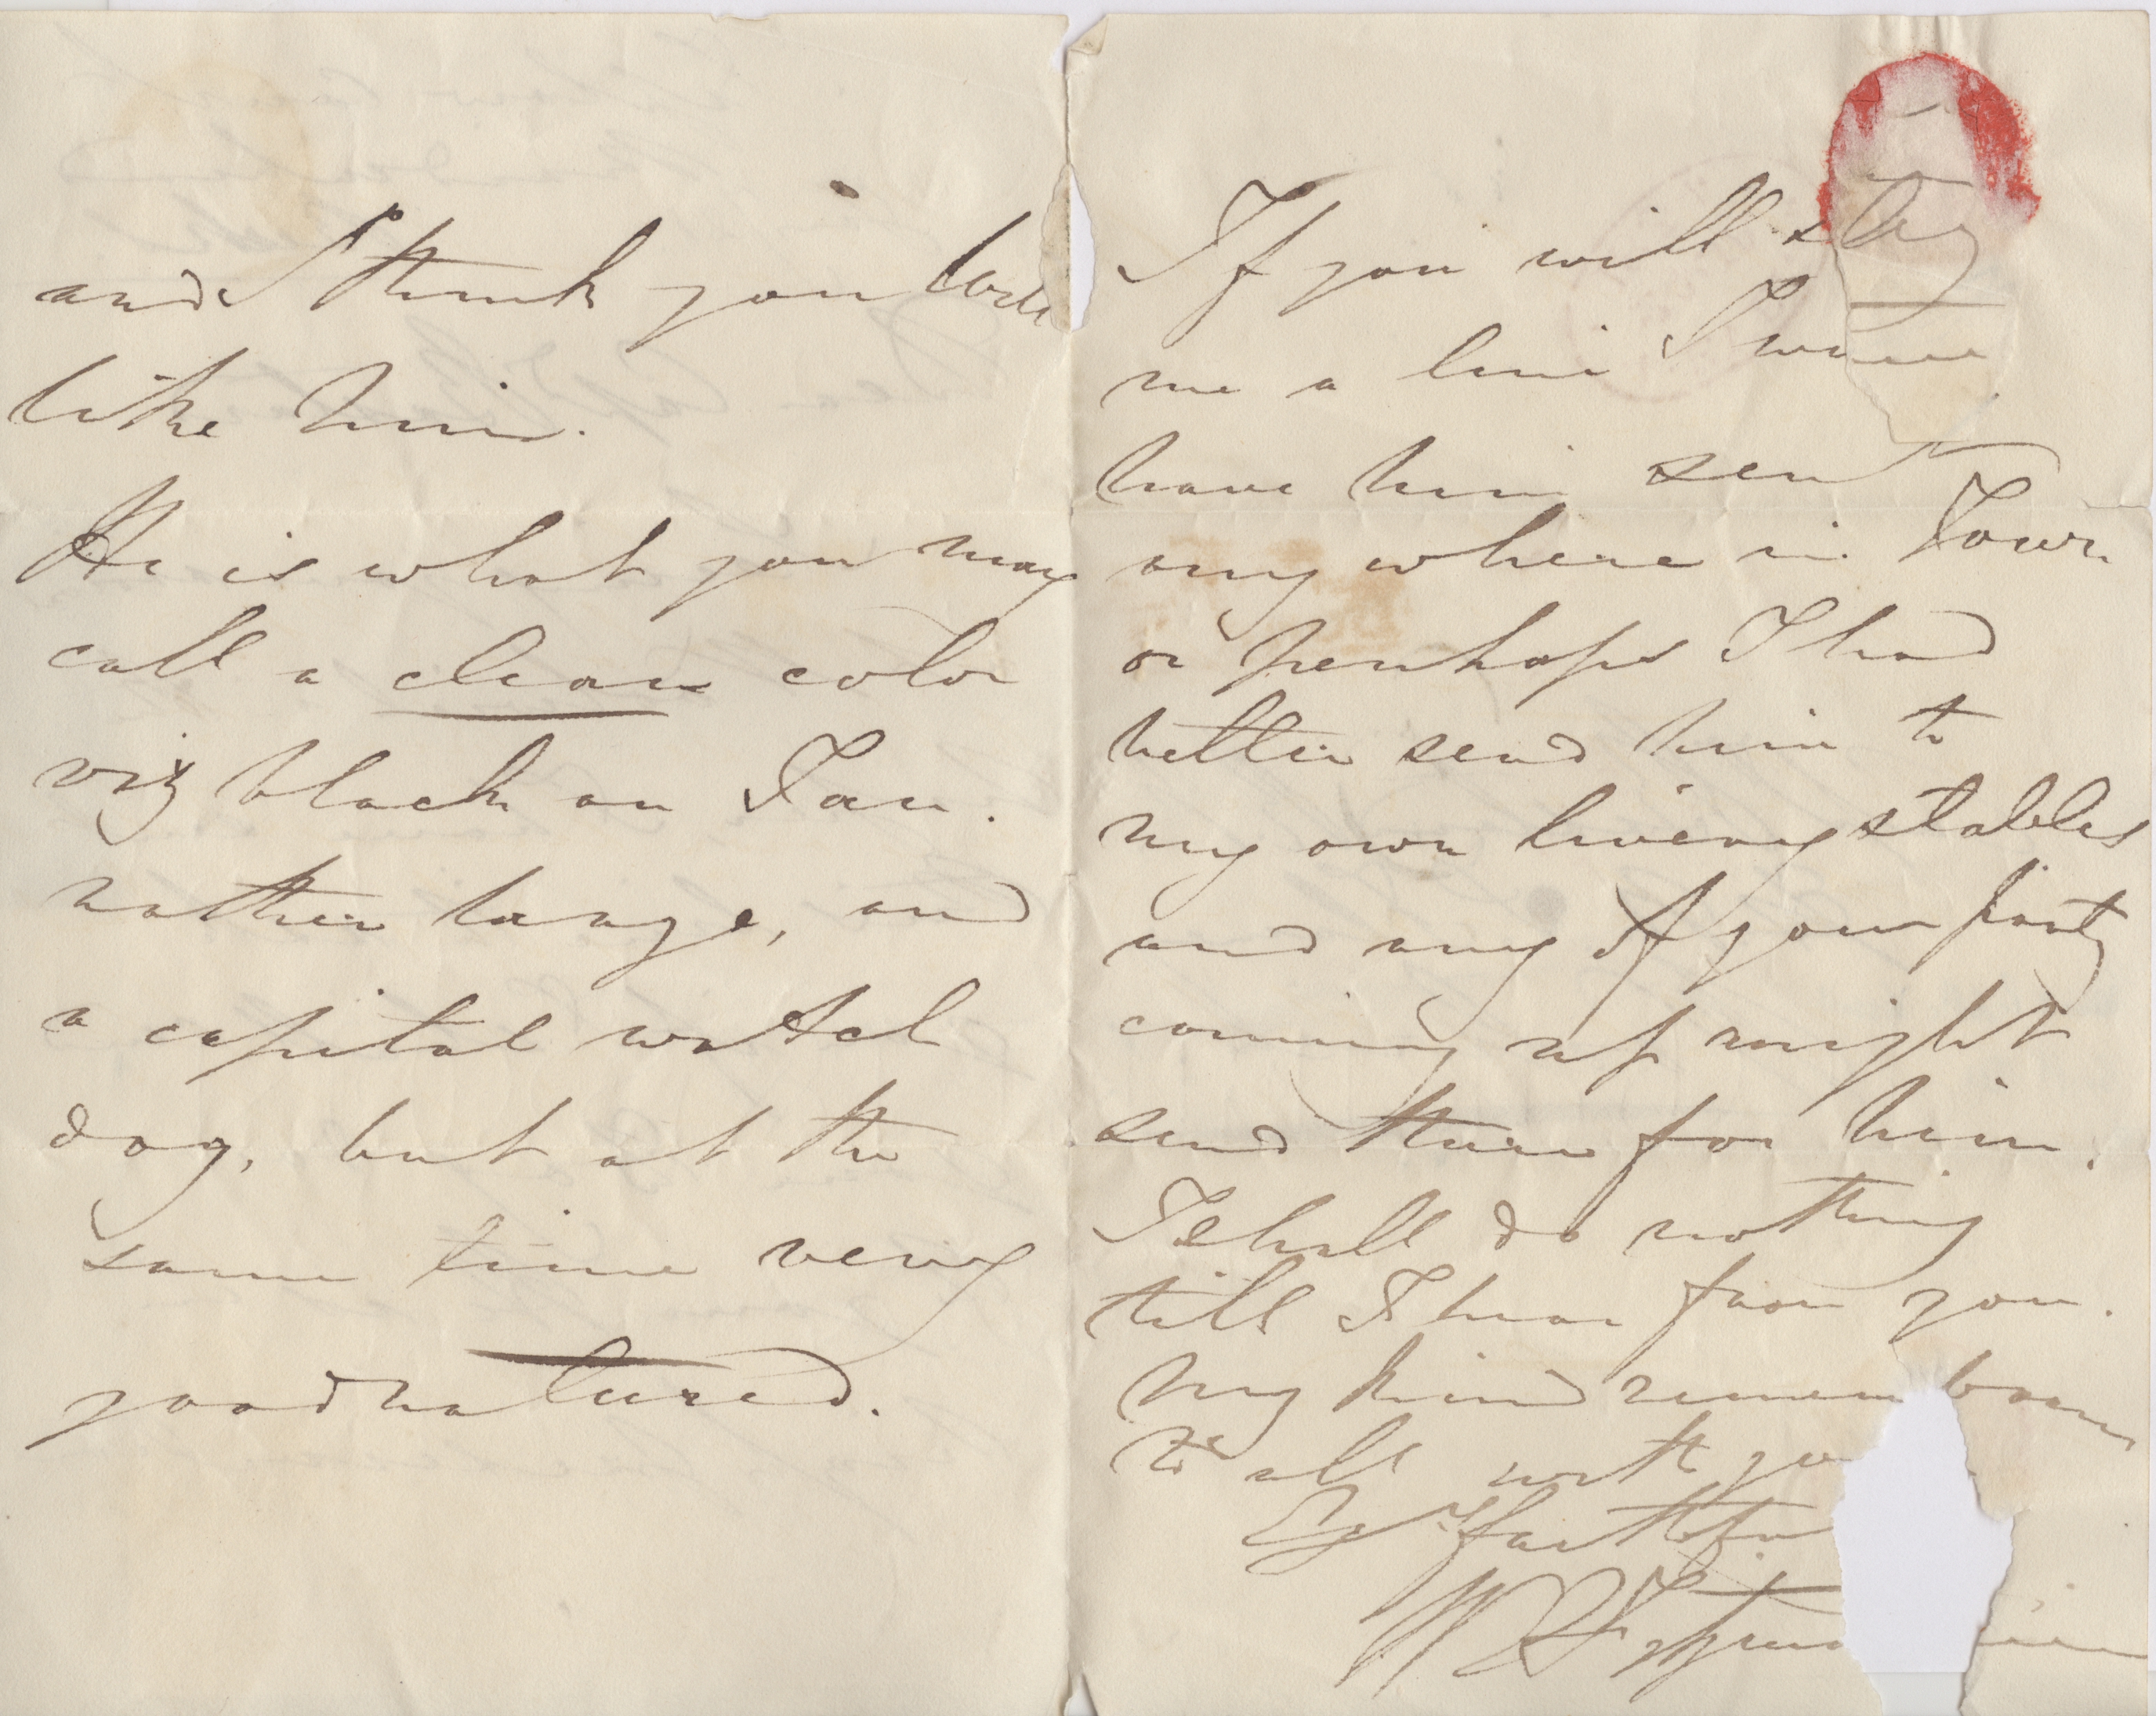 and I think you will
like him.
He is what you may
call a clean color
viz black an Tan.
rather large, and
a capital watch
dog, but at the
same time very
goodnatured.
If you will
me a line I
have him sent
any where in Town
or perhaps I had
better send him to
my own livery stables
and any of your party
coming up might
send there for him.
I shall do nothing
till I hear from you.
My kind remembran
to all with you
faithfu
W